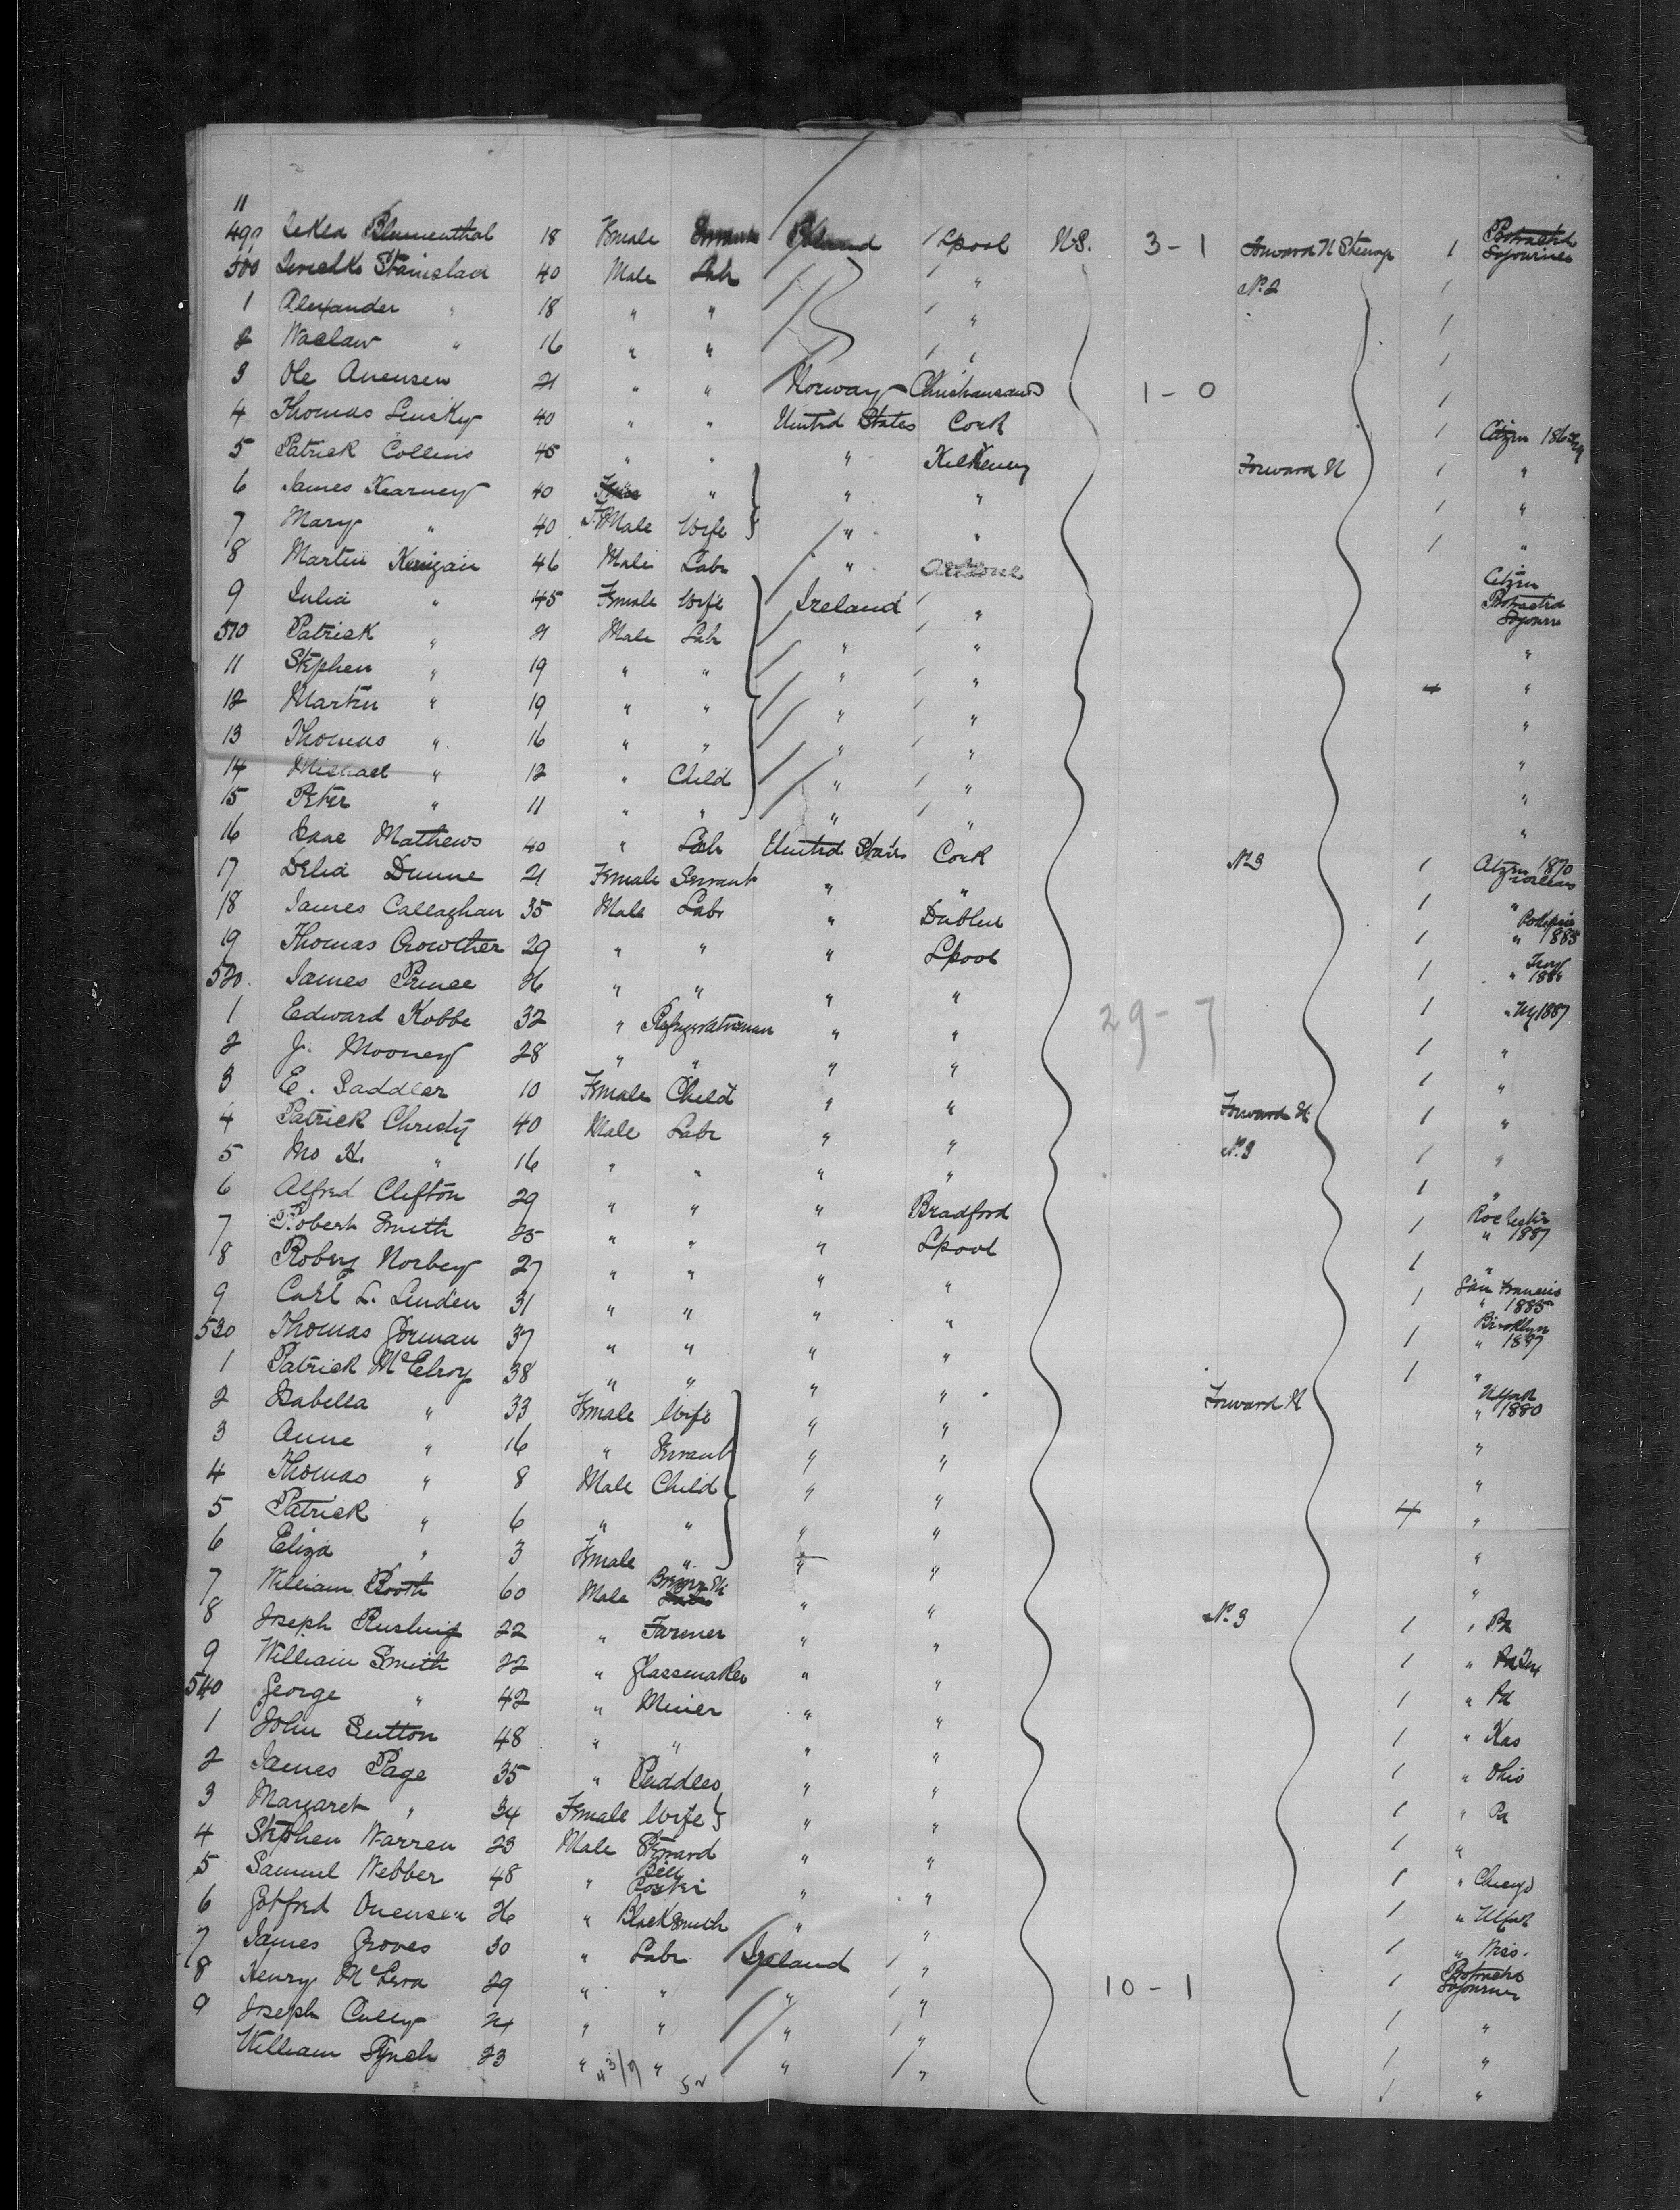 11
499 Tekla Blumenthal 18 Female Servant Poland / Lpool N.S. 3-1 Forward N Steerage 1 Protracted Sojourner
500 Stanislau 40 Male Labr / " No. 2 1
1 Alexander " 18 " " / " 1
2 Waclaw " 16 " " / " 1
3 Ole Anensen 21 " " Norway Christiansand 1-0 1
4 Thomas Lusky 40 " " United States Cork 1 Citizen
5 Patrick Collins 45 " " " Kilkenny Forward N 1 "
6 James Kearney 40 " " " 1 "
7 Mary " 40 Female Wife " " 1 "
8 Martin Kerrigan 46 Male Labr " Citizen
9 Julia " 45 Female Wife Ireland / " Protracted Sojourn
510 Patrick " 21 Male Labr " / " "
11 Stephen " 19 " " " / " "
12 Martin " 19 " " " / " "
13 Thomas " 16 " " " / " "
14 Michael " 12 " Child " / " "
15 Peter " 11 " " " / " "
16 Isaac Mathews 40 " Labr United States Cork No 3 1 Citizen 1870
17 Delia Dunne 21 Female Servant " " 1 "
18 James Callaghan 35 Male Labr " Dublin 1 " 1885
19 Thomas Crowther 29 " " " Lpool 1 Troy "
520 James Prince 26 " " " " 1 " NY 1887
1 Edward Kobbe 32 " Refrigeratorman " " 29-7 1 "
2 J. Mooney 28 " " " " 1 "
3 E. Saddler 10 Female Child " " Forward N. 1 "
4 Patrick Christy 40 Male Labr " " No. 3 1 "
5 Jno H. " 16 " " " " 1 "
6 Alfred Clifton 29 " " " Bradford 1 Rochester " 1887
7 Robert Smith 25 " " " Lpool 1 "
8 Robery Norbey 27 " " " " 1 San Francis " 1885
9 Carl L. Linden 31 " " " " 1 Brooklyn " 1887
530 Thomas Gorman 37 " " " " 1 "
1 Patrick McElroy 38 " " " " Forward N NYork " 1880
2 Isabella " 33 Female Wife " " "
3 Anne " 16 " Servant " " "
4 Thomas " 8 Male Child " " 4 "
5 Patrick " 6 " " " " "
6 Eliza " 3 Female " " " "
7 William Booth 60 Male " " No. 3 1 " Pa
8 Joseph Rushing 22 " Farmer " " 1 "
9 William Smith 22 " Glassmaker " " 1 " Pa
540 George " 42 " Miner " " 1 " Kas
1 John Sutton 48 " " " " 1 " Ohio
2 James Page 35 " Puddler " " 1 " Pa
3 Margaret " 34 Female Wife " " 1 "
4 Stephen Warren 23 Male Steward " " 1 " Chicago
5 Samuel Webber 48 " Bill Poster " " 1 " NYork
6 Gotfred Onensen 26 " Blacksmith " " 1 "
7 James Groves 30 " Labr Ireland / " 10-1 1 Protracted Sojourner
8 Henry 29 " " " / " 1 "
9 Joseph Cully 24 " " " / " 1 "
William Lynch 23 " " " / " 1 "